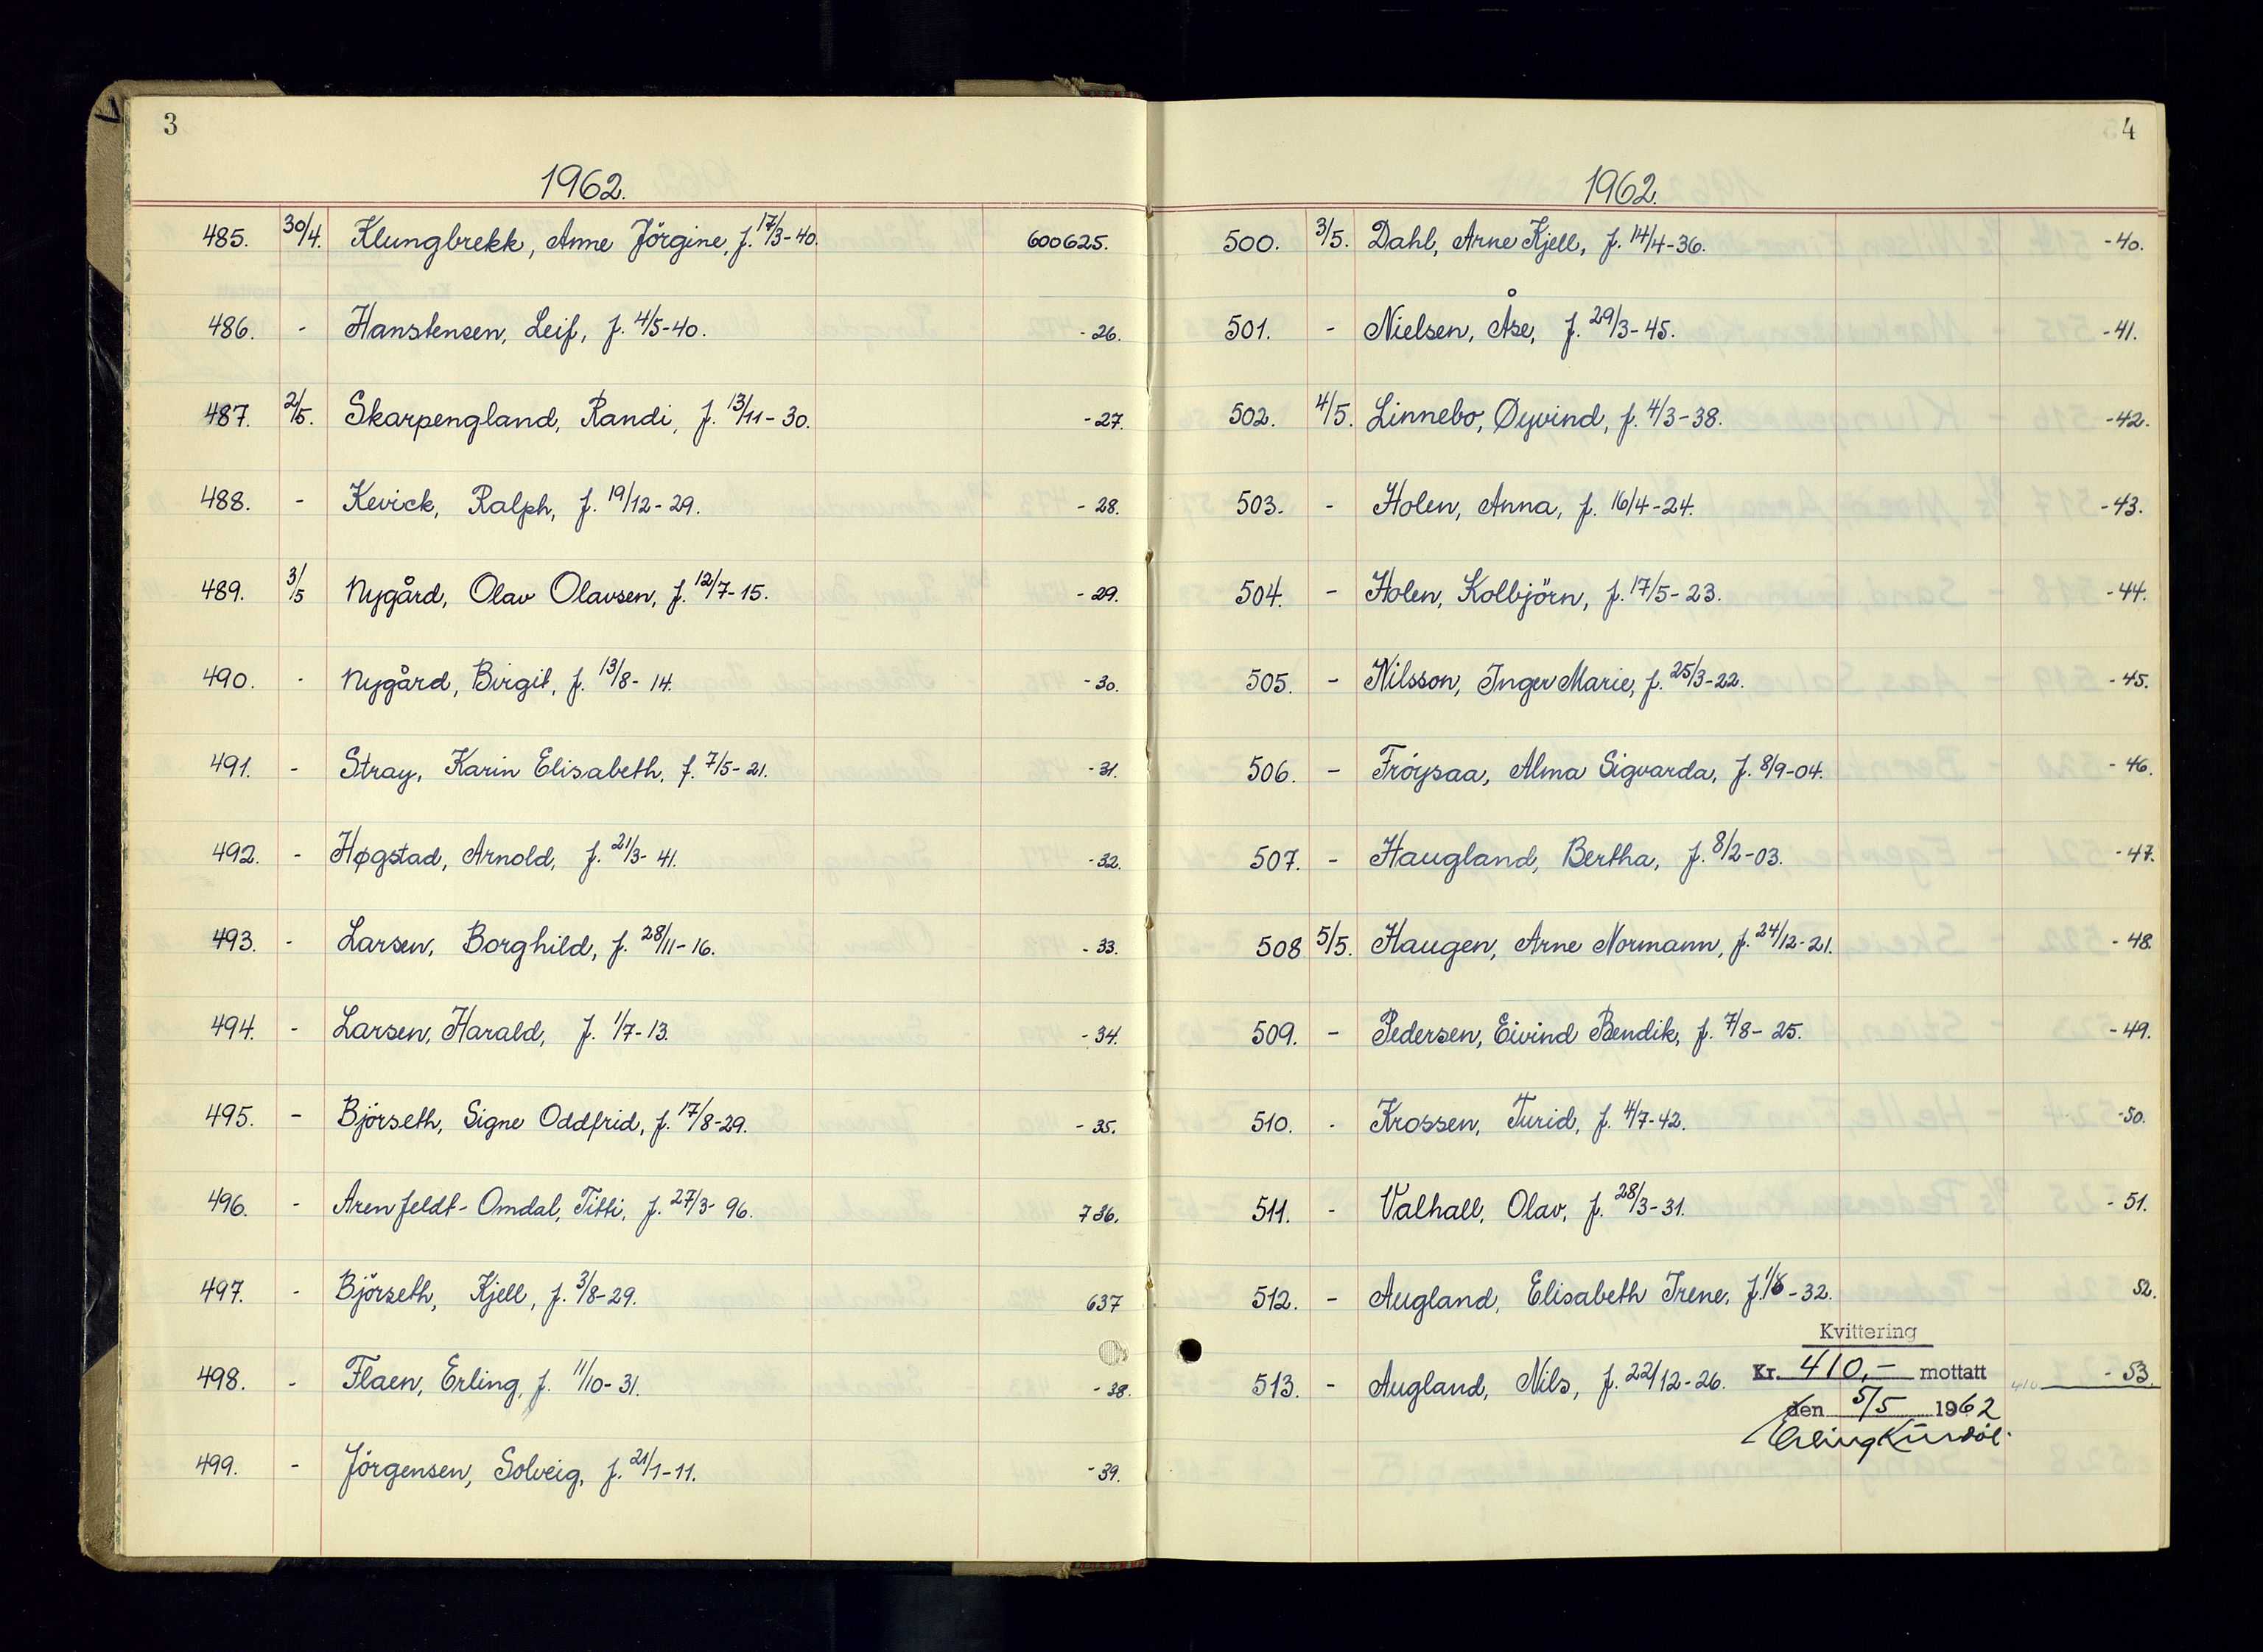 3
1962.
485. 30/4. Klungbrekk, Anne Jörgine, f. 17/3-40. 600625.
486. - Hanstensen, Leif, f. 4/5-40. -26.
487. 2/5. Skarpengland, Randi, f. 13/11-30. -27.
488. - Kevick, Ralph, f. 19/12-29. -28.
489. 3/5 Nygård, Olav Olavsen, f. 12/7-15. -29.
490. - Nygård, Birgit, f. 13/8-14. -30.
491. - Stray, Karin Elisabeth, f. 7/5-21. -31.
492. - Høgstad, Arnold, f. 21/3-41. -32.
493. - Larsen, Borghild, f. 28/11-16. -33.
494. - Larsen, Harald, f. 1/7-13. -34.
495. - Björseth, Signe Oddfrid, f. 17/8-29. -35.
496. - Arenfeldt-Omdal, Titti, f. 27/3-96. 736.
497. - Björseth, Kjell, f. 3/8-29. 637
498. - Flaen, Erling, f. 11/10-31. -38.
499. - Jörgensen, Solveig, f. 21/1-11. -39.
4
1962.
500. 3/5. Dahl, Arne Kjell, f. 14/4-36. -40.
501. - Nielsen, Åse, f. 29/3-45. -41.
502. 4/5. Linnebo, Øyvind, f. 4/3-38. -42.
503. - Holen, Anna, f. 16/4-24. -43.
504. - Holen, Kolbjörn, f. 17/5-23. -44.
505. - Nilsson, Inger Marie, f. 25/3-22. -45.
506. - Fröysaa, Alma Sigvarda, f. 8/9-04. -46.
507. - Haugland, Bertha, f. 8/2-03. -47.
508 5/5. Haugen, Arne Normann, f. 24/12-21. -48.
509. - Pedersen, Eivind Bendik, f. 7/8-25. -49.
510. - Krossen, Turid, f. 4/7-42. -50.
511. - Valhall, Olav, f. 28/3-31. -51.
512. - Augland, Elisabeth Irene, f. 1/8-32. 52.
Kvittering
513. - Augland, Nils, f. 22/12-26. Kr. 410,- mottatt 410 -53.
den 5/5 1962
Erling